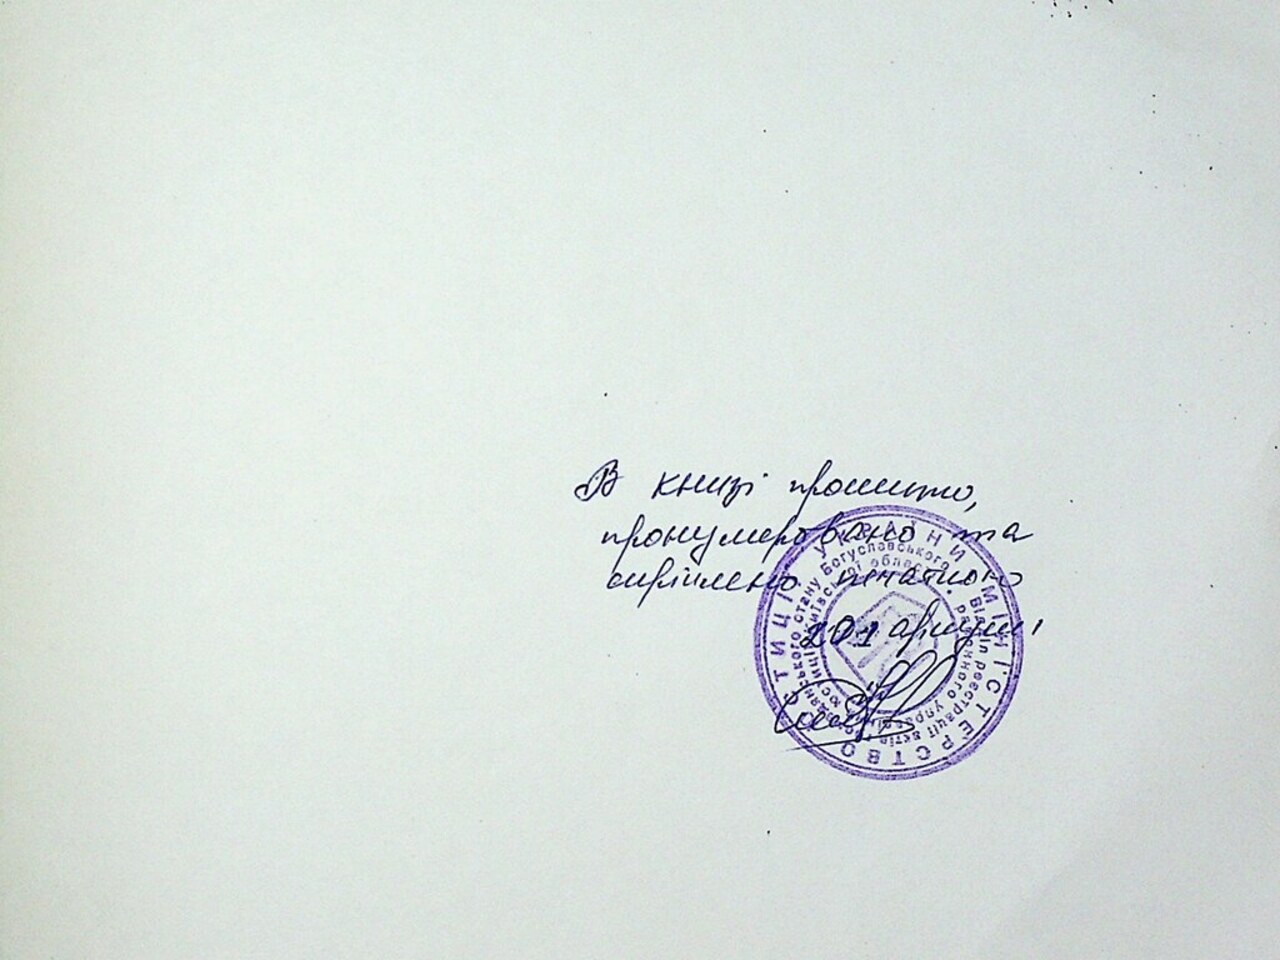 В книзі прошито,
пронумеровано та
скріплено печаткою
201 аркуші
МІНІСТЕРСТВО ЮСТИЦІЇ УКРАЇНИ
Відділ реєстрації актів громадянського стану Богуславського
районного управління юстиції Київської області